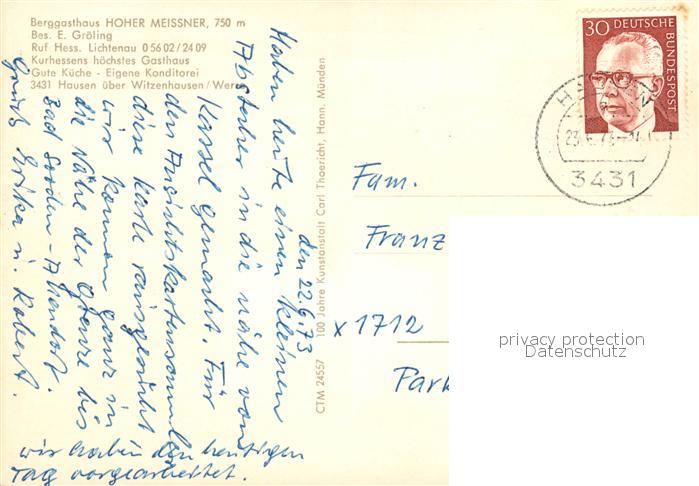 Berggasthaus HOHER MEISSNER, 750 m
Bes. E. Gröling
Ruf Hess. Lichtenau 0 56 02 / 24 09
Kurhessens höchstes Gasthaus
Gute Küche - Eigene Konditorei
3431 Hausen über Witzenhausen / Werra
den 22.6.73
Haben heute einen kleinen
Abstecher in die Nähe von
Kassel gemacht. Für
den Ansichtskartensammler
diese Karte rausgesucht
wir kommen ganz in
die Nähe der Grenze bis
Bad Sooden-Allendorf.
Gruß Erika u. Robert.
wir haben den heutigen
Tag vorgearbeitet.
CTM 24557 100 Jahre Kunstanstalt Carl Thoericht, Hann. Münden
30 DEUTSCHE BUNDESPOST
3431
Fam.
Franz
x 1712
Park
privacy protection
Datenschutz